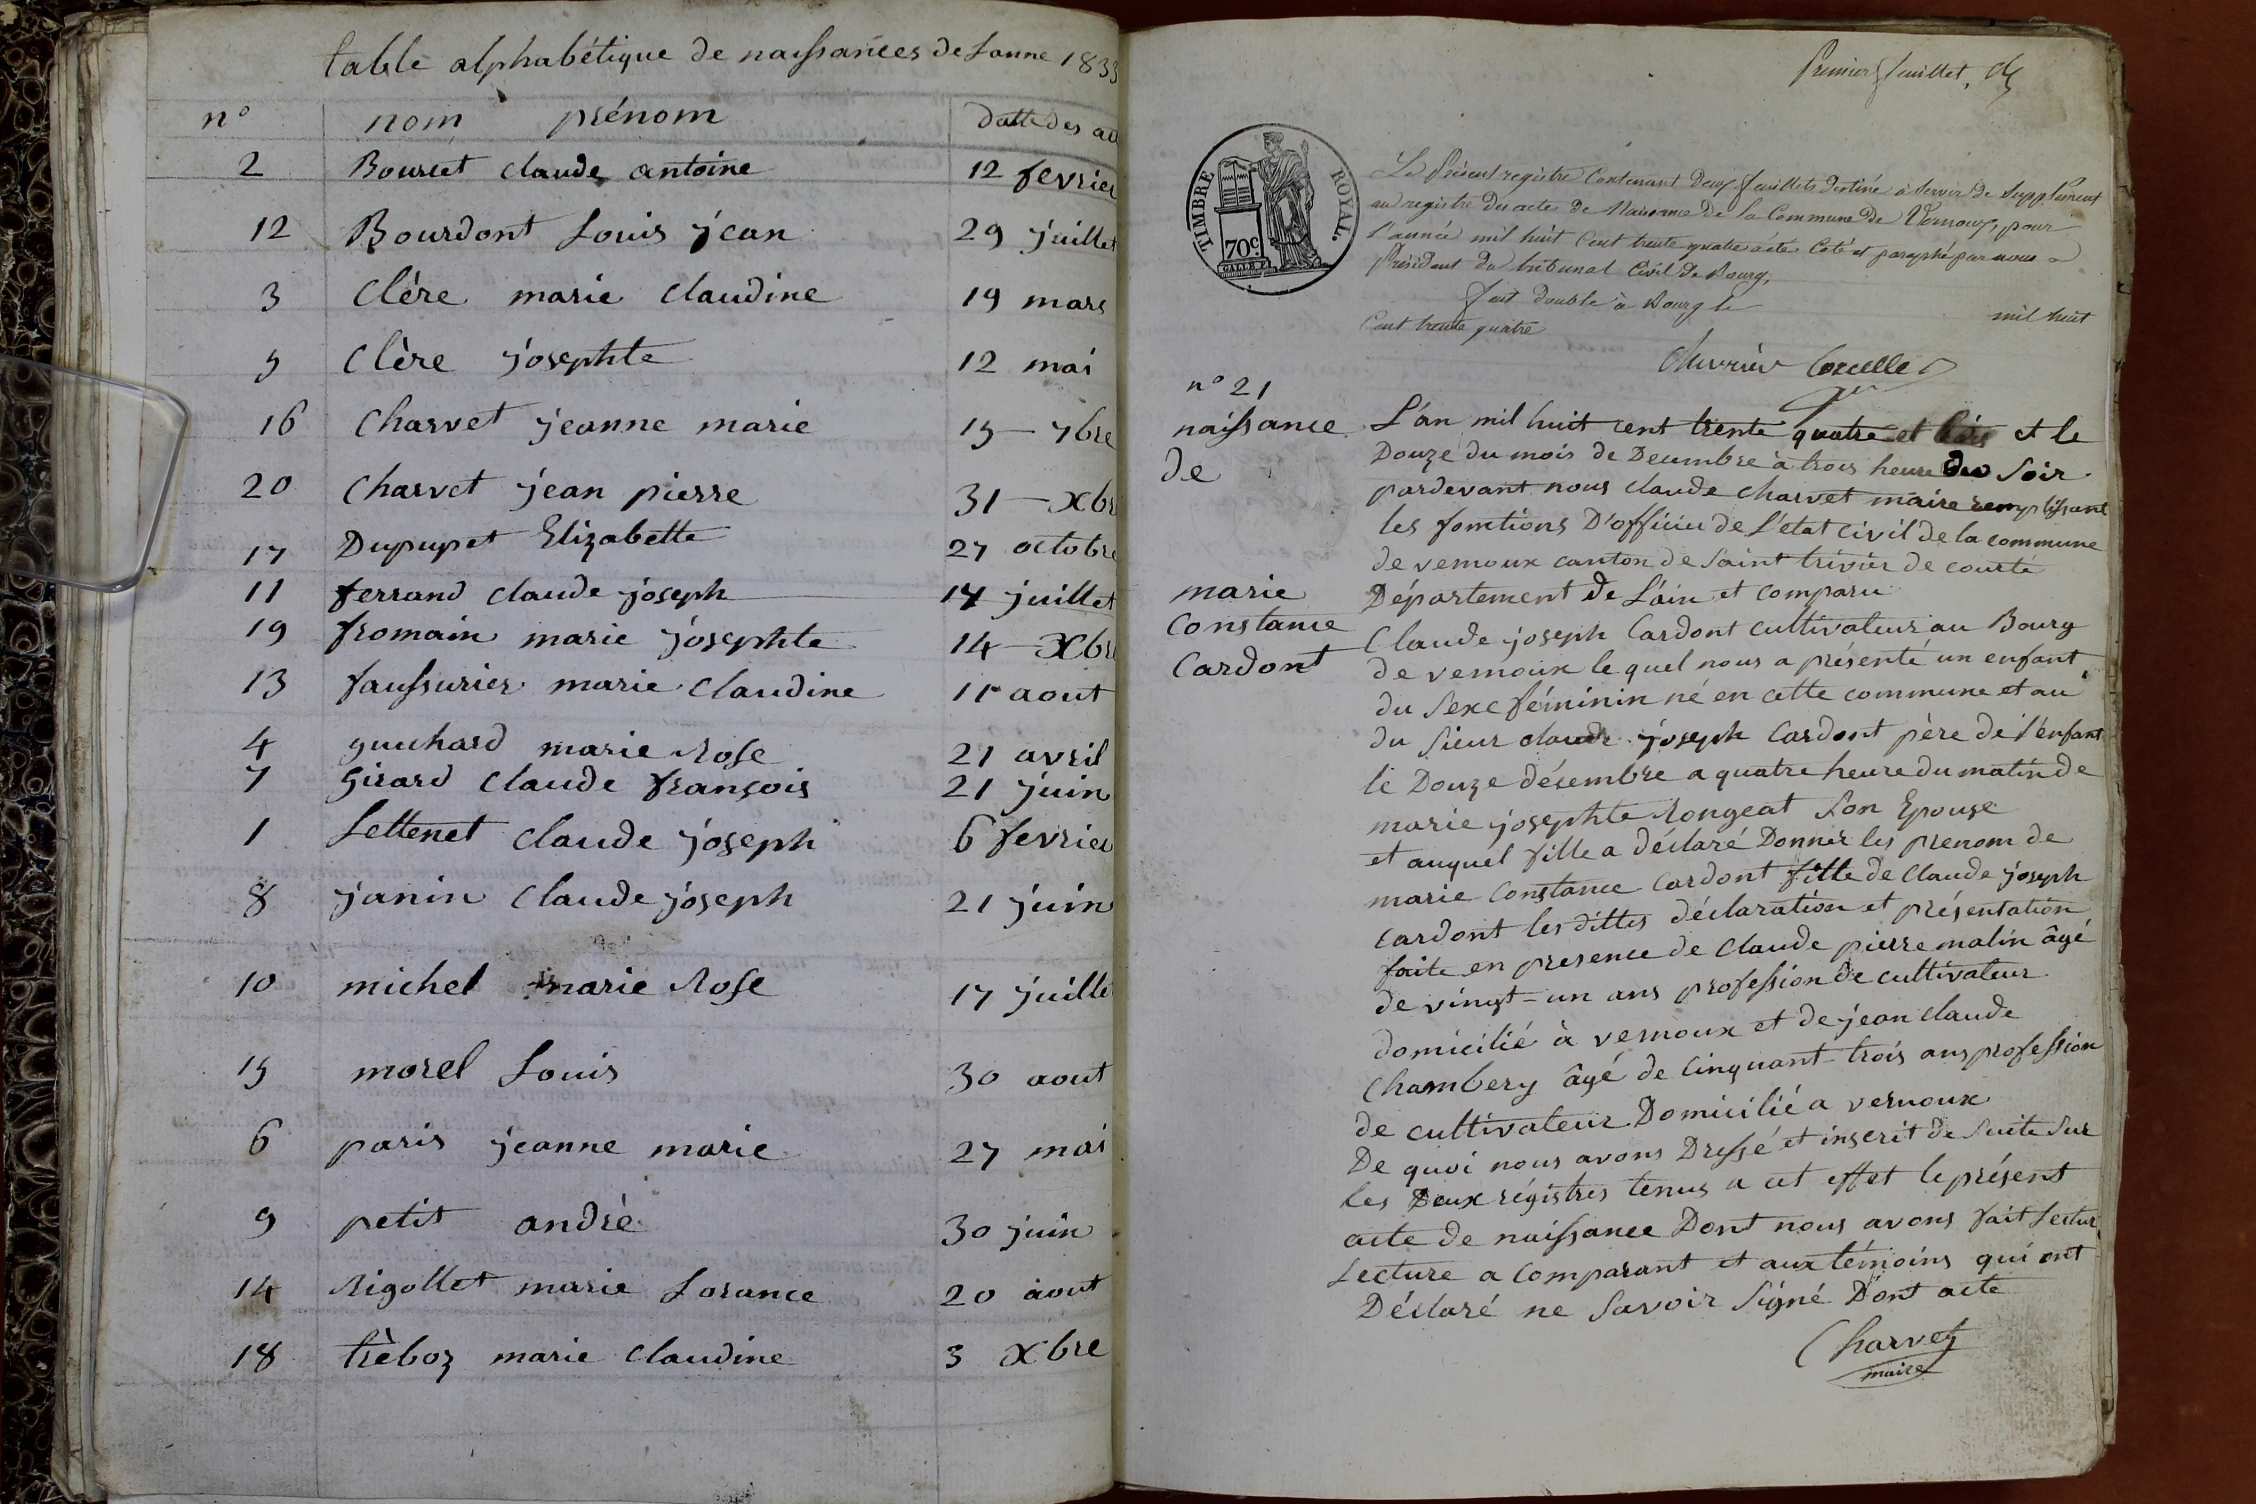 table alphabétique de naissances de Lanne 1833
n° nom prénom datte des
2 Bourcet claude antoine 12 fevrier
12 Bourdont Louis jean 29 juillet
3 Clère marie claudine 19 mars
5 Clère josephte 12 mai
16 Charvet jeanne marie 15 7bre
20 Charvet jean pierre 31 Xbr
17 Dupupet Elizabette 27 octobre
11 ferrand claude joseph 17 juillet
19 fromain marie josephte 14 Xbre
13 faussurier marie claudine 11 aout
4 guichard marie Rose 21 avril
7 Girard claude françois 21 juin
1 Lettenet claude joseph 6 fevrier
8 janin claude joseph 21 juin
10 michel marie Rose 17 juille
15 morel Louis 30 aout
6 paris jeanne marie 27 mai
9 petit andrè 30 juin
14 Rigollet marie Lorance 20 aout
18 trèboz marie claudine 3 Xbre
Premier feuillet.
TIMBRE ROYAL.
70c.
Le Présent registre Contenant deux feuillets destiné à Servir de Supplément
au registre des actes de Naissance de la Commune de Vernoux, pour
l'année mil huit Cent trente quatre a été Coté et paraphé par nous
Président du tribunal Civil de Bourg,
fait double à Bourg le mil huit
Cent trente quatre
n° 21
naissance
de
marie
Constance
Cardont
L'an mil huit cent trente quatre et et le
Douze du mois de Decembre à trois heure du Soir
pardevant nous claude charvet maire remplissant
les fonctions D'officier de L'etat civil de la commune
de vernoux canton de Saint trivier de courte
Département de L'ain et comparu
Claude joseph Cardont cultivateur au Bourg
de vernoux le quel nous a présenté un enfant
du Sexe féminin né en cette commune et au
du Sieur claude joseph Cardont père de l'enfant
le Douze désembre a quatre heure du matin de
marie josephte Rongeat Son Epouse
et auquel fille a déclaré Donner les prenom de
marie constance Cardont fille de claude joseph
cardont les dittes déclaration et présentation
faite en presence de claude pierre malin âgé
de vingt-un ans profession de cultivateur
domicilié à vernoux et de jean claude
Chambery âgé de Cinquant-trois ans profession
de cultivateur Domicilié a vernoux
De quoi nous avons Dressé et inscrit de Suite Sur
les Deux régistres tenus a cet effet le présent
acte de naissance Dont nous avons fait Lectur
Lecture a comparant et aux témoins qui ont
Déclaré ne Savoir Signé Dont acte
Charvet
maire